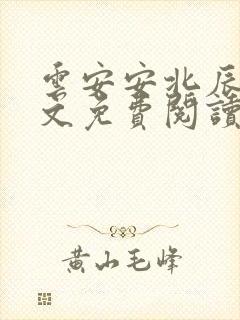 雲安安北辰
文免費閱讀
黃山毛峰